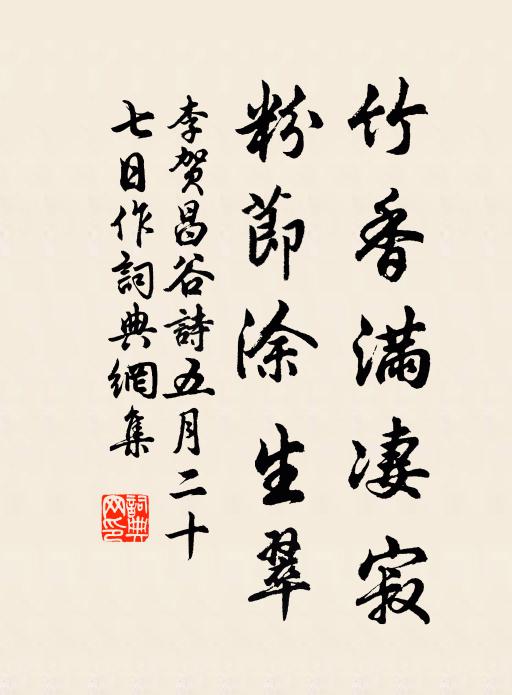 竹香滿凄寂
粉節涂生翠
李賀昌谷詩五月二十
七日作詞典網集
詞典网印